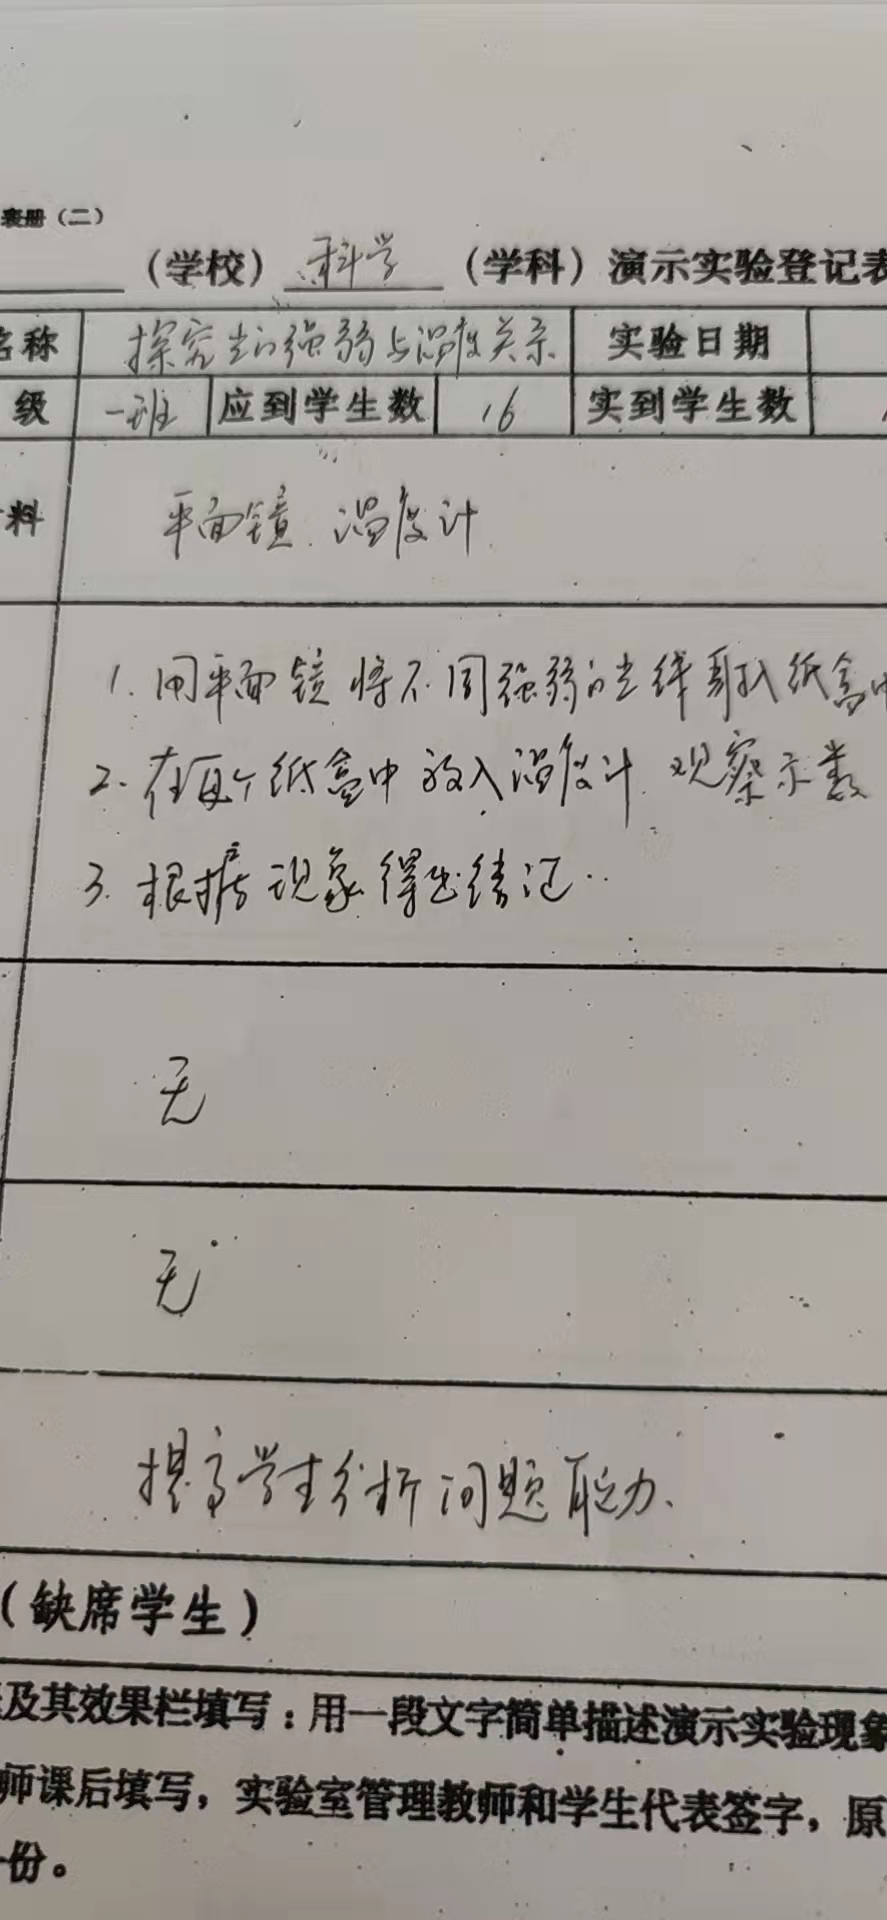 表册（二）
（学校） 科学 （学科）演示实验登记表
名称 探究光的强弱与温度关系 实验日期
级 一班 应到学生数 16 实到学生数
料 平面镜 温度计
1. 用平面镜将不同强弱的光线引入纸盒中
2. 在每个纸盒中放入温度计 观察示数
3. 根据现象得出结论.
无
无
提高学生分析问题能力、
（缺席学生）
及其效果栏填写：用一段文字简单描述演示实验现象
师课后填写，实验室管理教师和学生代表签字，原
份。